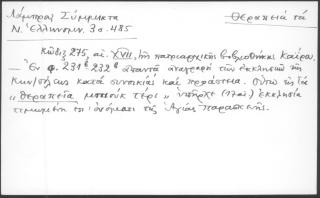 Λάμπρος Σύμμικτα
Θεραπειά τά
Ν. Ἑλληνομν. 3ο.485
Κῶδιξ 275, αἰ. XVII, τῆς πατριαρχικῆς βιβλιοθήκης Καΐρου.
— Ἐν φ. 231β 232α ἀπαντᾷ ἀναγραφὴ τῶν ἐκκλησιῶν τῆς
Κων/πόλεως κατὰ συνοικίας καὶ προάστεια. Οὕτω τῆς τὰ
„θεραπεῖα μπουγιοὺκ τερὲ" ὑπῆρχε (17αι.) ἐκκλησία
τιμωμένη ἐπ' ὀνόματι τῆς Ἁγίας Παρασκευῆς.